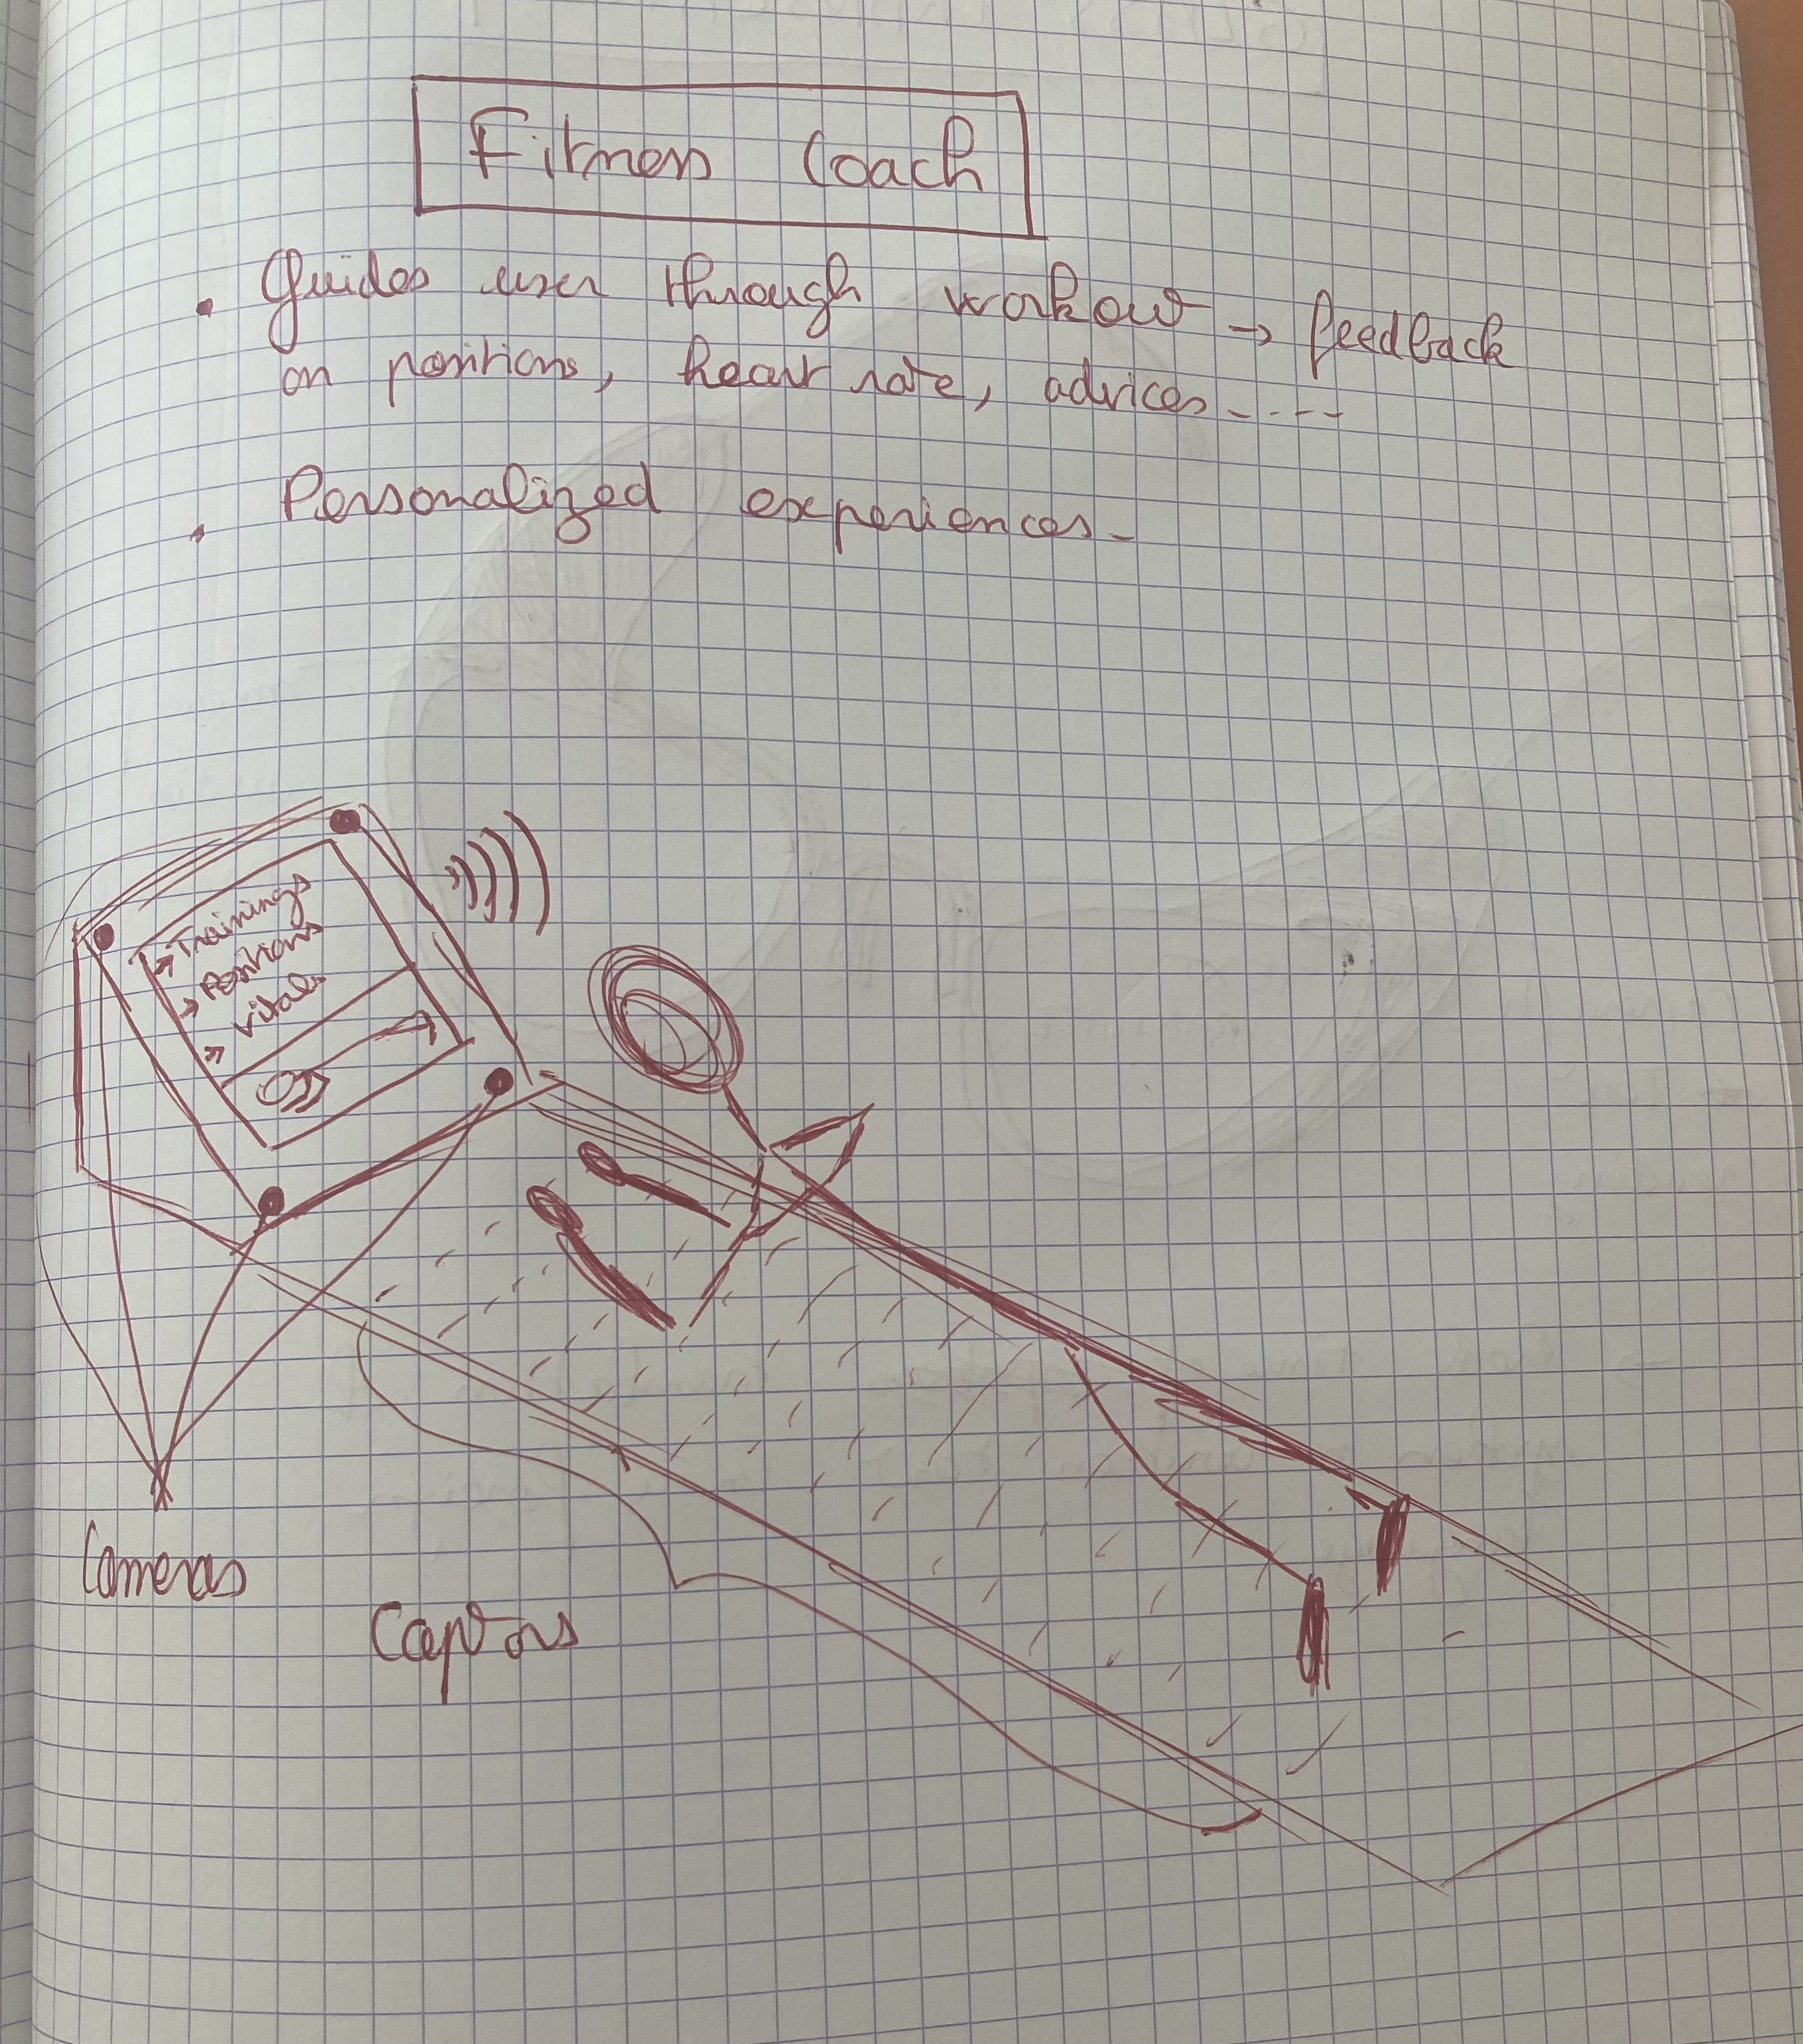 Fitness Coach
• Guides user through workout → feedback
on positions, heart rate, advices-----
• Personalized experiences-
→ Trainings
→ Positions
→ vitals
Cameras
Captors